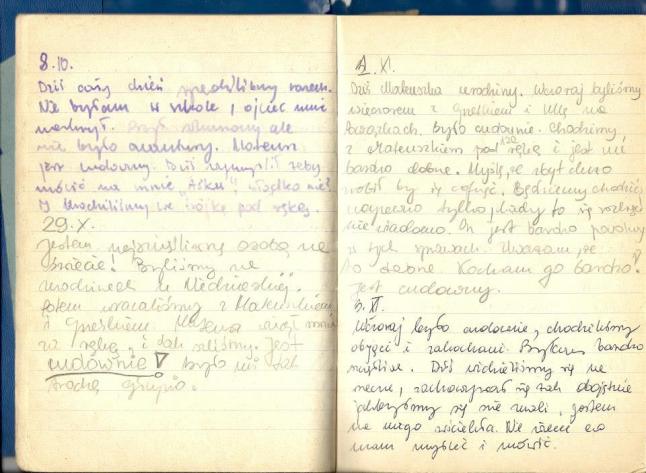 8.10.
Dziś cały dzień spędziliśmy razem.
Nie byłam w szkole, ojciec mnie
ale
nie było awantury. Mateusz
jest cudowny. Dziś wymyślił żeby
mówić na mnie "Aśka"
I chodziliśmy we trójkę pod rękę.
29.X.
Jestem najszczęśliwszą osobą na
świecie! Byliśmy na
urodzinach u
potem wracaliśmy z Mateuszkiem
i Grześkiem. Mateusz wziął mnie
za rękę, i tak szliśmy. Jest
cudownie! Było mi tak
trochę głupio.
1.XI.
Dziś Mateuszka urodziny. Wczoraj byliśmy
wieczorem z Grześkiem i Ulą na
Było cudownie. Chodziłam
z Mateuszkiem pod rękę i jest mi
bardzo dobrze. Myślę, że
robił by się cofnąć. Będziemy chodzić
napewno tylko kiedy to się
nie wiadomo. On jest bardzo
w tych sprawach. Uważam, że
to dobrze. Kocham go bardzo!
Jest cudowny.
3.XI.
Wczoraj było cudownie, chodziliśmy
objęci i zakochani. Byłam bardzo
Dziś widzieliśmy się na
zachowywał się tak obojętnie
jakbyśmy się nie znali, jestem
na niego wściekła. Nie wiem co
mam myśleć i mówić.